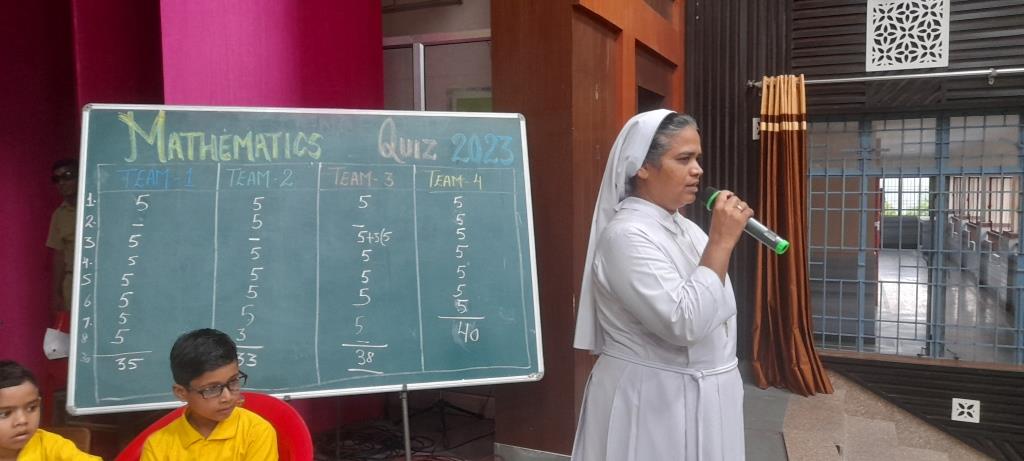 MATHEMATICS QUIZ 2023
TEAM-1 TEAM-2 TEAM-3 TEAM-4
1. 5 5 5 5
2. – 5 – 5
3 5 – 5+3(5 5
4. 5 5 5 5
5. 5 5 5 5
6 5 5 5 5
7. 5 5 5 5
8 5 3
35 33 38 40